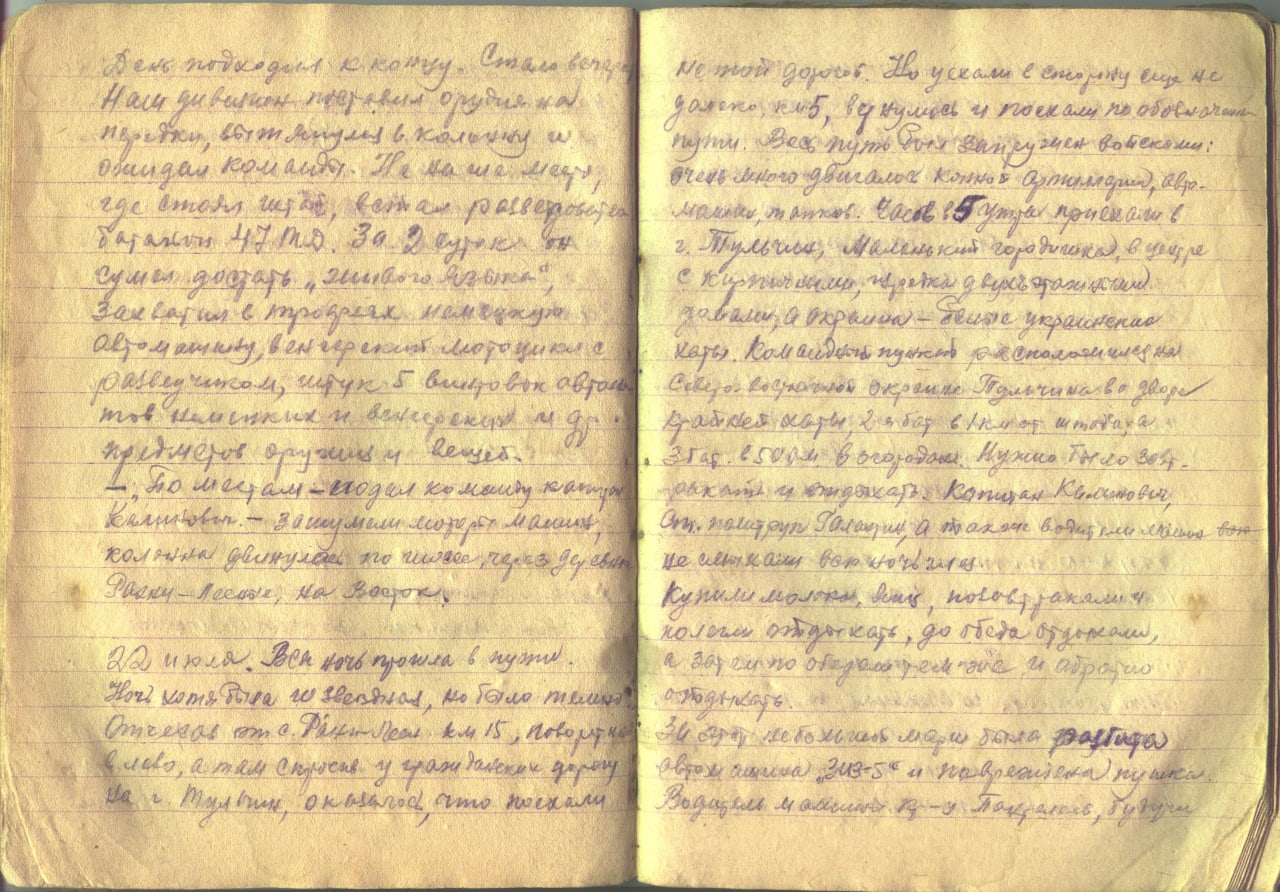 День подходил к концу. Стало вечер
Наш дивизион поставил орудия на
передки, вытянулся в колонну и
ожидал команды. На наше место,
где стоял штаб, встал разведроват
батальон 47 ТД. За 2 суток он
сумел достать „живого языка“,
захватил в трофеях немецкую
автомашину, венгерский мотоцикл с
разведчиком, штук 5 винтовок автома-
тов немецких и венгерских и др.
предметов оружия и вещей.
— „По местам — подал команду капитан
Калинович. — Зашумели моторы машин,
колонна двинулась по шоссе, через деревню
на Восток.
22 июля. Вся ночь прошла в пути.
Ночь хотя была и звездная, но было темно.
Отъехав от с. км 15, повернули
влево, а там спросив у гражданских дорогу
на г. Тульчин, оказалось, что поехали
не той дорогой. Но уехали в сторону еще не
далеко, км 5, вернулись и поехали по обозначенн
пути. Весь путь был запружен войсками:
очень много двигалось конной артиллерии, авто-
машин, танков. Часов в 5 утра приехали в
г. Тульчин, маленький городишка, в центре
с кирпичными, изредка двухэтажными
домами, а окраина — белые украинские
хаты. Командный пункт расположился на
Северо-восточной окраине Тульчина во дворе
крайней хаты 2-я бат в 1 км от штаба, а
3 бат. в 500 м в огородах. Нужно было завт-
ракать и отдыхать. Капитан Калинович,
Ст. политрук а также водители машин
не смыкали всю ночь глаз.
Купили молока, яиц, позавтракали и
полегли отдыхать, до обеда отдыхали,
а затем пообедали тем же и обратно
отдыхать.
За этот небольшой марш была разбита
автомашина „ЗИЗ-5“ и повреждена пушка.
Водитель машины кр-ц будучи